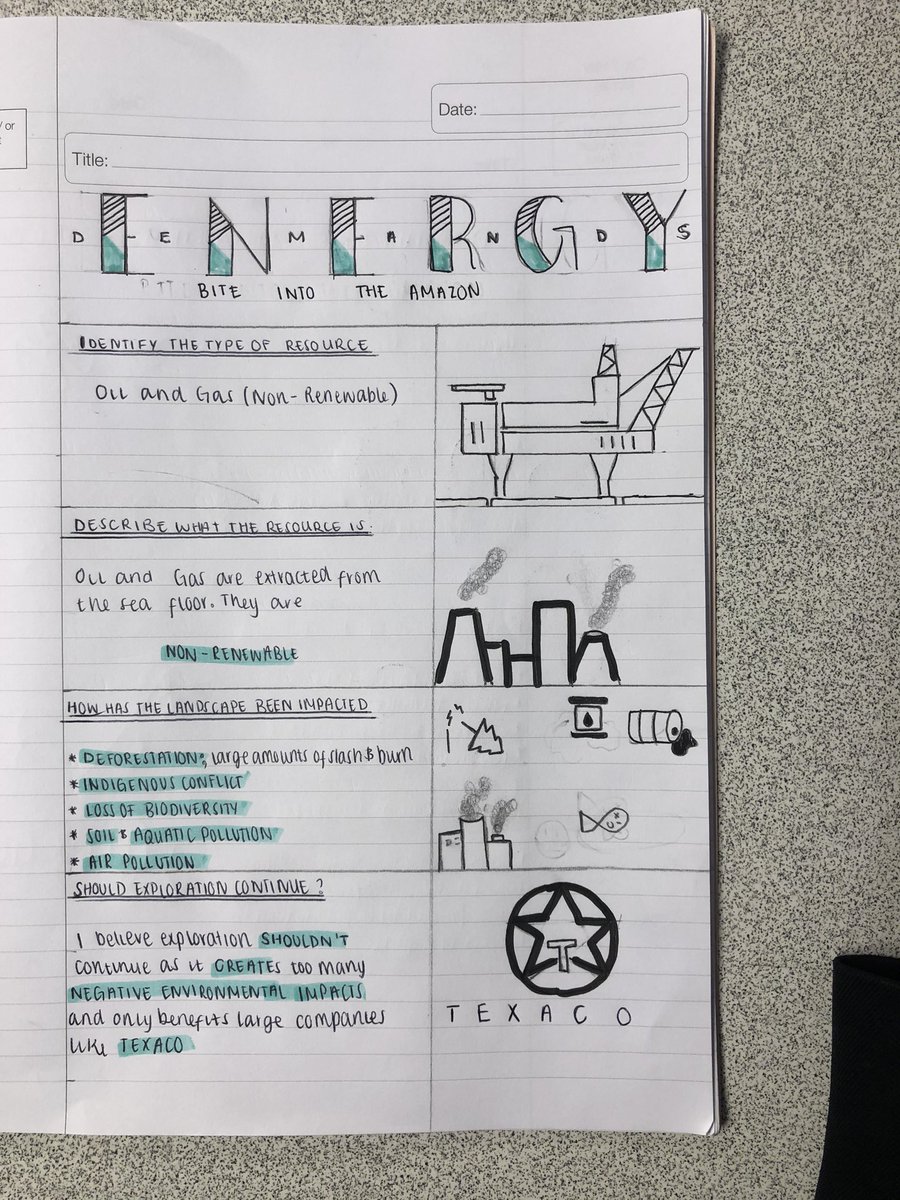 / or
Date:
Title:
ENERGY
DEMANDS
BITE INTO THE AMAZON
IDENTIFY THE TYPE OF RESOURCE
Oil and Gas (Non-Renewable)
DESCRIBE WHAT THE RESOURCE IS.
Oil and Gas are extracted from
the sea floor. They are
NON-RENEWABLE
HOW HAS THE LANDSCAPE BEEN IMPACTED
* DEFORESTATION; large amounts of slash & burn
* INDIGENOUS CONFLICT
* LOSS OF BIODIVERSITY
* SOIL & AQUATIC POLLUTION
* AIR POLLUTION
SHOULD EXPLORATION CONTINUE?
I believe exploration SHOULDN'T
continue as it CREATES too many
NEGATIVE ENVIRONMENTAL IMPACTS
and only benefits large companies
like TEXACO
T
TEXACO